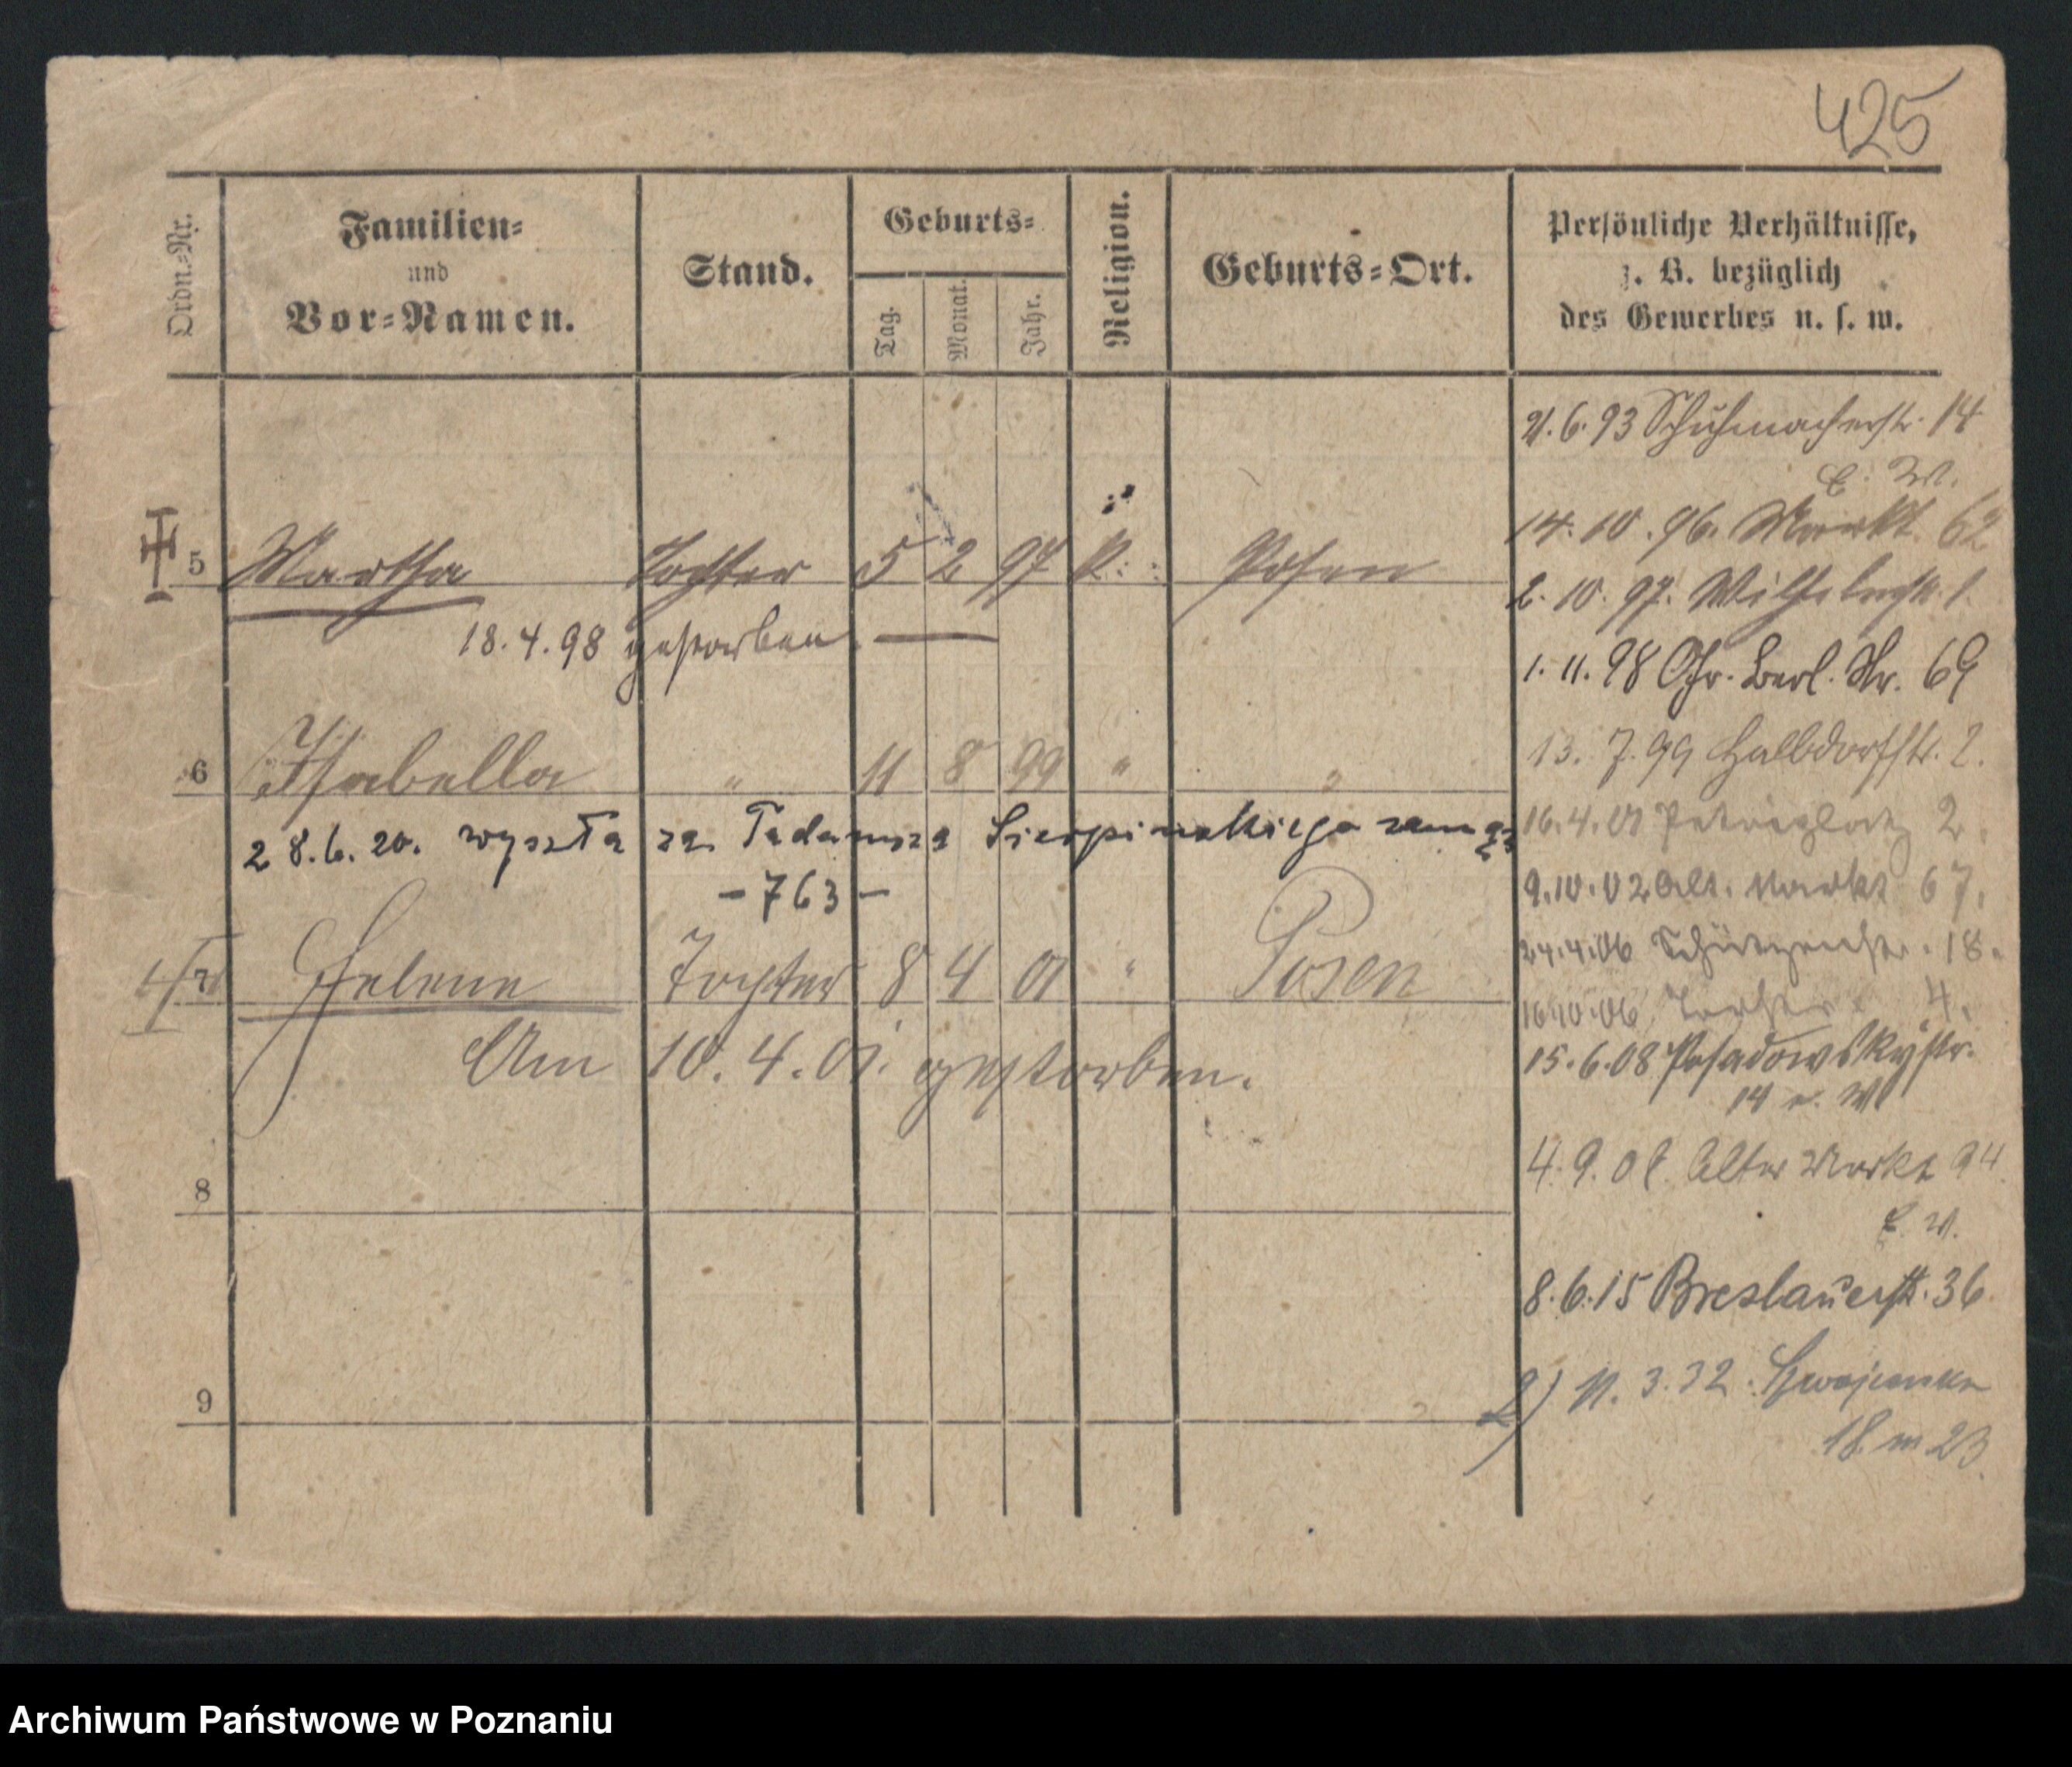 425
Ordn.-Nr.
Familien-
und
Vor-Namen.
Stand.
Geburts-
Tag.
Monat.
Jahr.
Religion.
Geburts-Ort.
Persönliche Verhältnisse,
z. B. bezüglich
des Gewerbes u. s. w.
21.6.93 Schuhmacherstr. 14
14.10.96. Markt 62
5 Martha Tochter 5 2 97 K. Posen
2.10.97. Wilhelmstr. 1.
18.4.98 gestorben.
1.11.98 Gr. Berl. Str. 69
13.7.99 Halbdorfstr. 2.
6 Isabella " 11 8 99 " "
28.6.20. wyszła za Tadeusza Sierpinskiego zamąż
16.4.01 Petriplatz 2.
- 763 -
9.10.02 Alt. Markt 67.
24.4.06 Schützenstr. 18.
7 Helene Tochter 8 4 01 " Posen
16.10.06 4.
Am 10.4.01. gestorben.
15.6.08 Posadowskystr.
14
8
4.9.08. Alter Markt 94.
8.6.15 Breslauerstr. 36
9
11.3.32.
18 m 23.
Archiwum Państwowe w Poznaniu